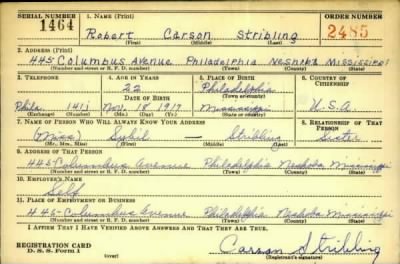 SERIAL NUMBER 1. NAME (Print) ORDER NUMBER
1464 Robert Carson Stribling 2485
(First) (Middle) (Last)
2. ADDRESS (Print)
445 Columbus Avenue Philadelphia Neshoba Mississippi
(Number and street or R. F. D. number) (Town) (County) (State)
3. TELEPHONE 4. AGE IN YEARS 5. PLACE OF BIRTH 6. COUNTRY OF CITIZENSHIP
22 Philadelphia
(Town or county)
DATE OF BIRTH
Phila. 1411 Nov. 18, 1917 Mississippi U.S.A.
(Exchange) (Number) (Mo.) (Day) (Yr.) (State or country)
7. NAME OF PERSON WHO WILL ALWAYS KNOW YOUR ADDRESS 8. RELATIONSHIP OF THAT PERSON
(Miss) Sybil — Stribling Sister
(Mr., Mrs., Miss) (First) (Middle) (Last)
9. ADDRESS OF THAT PERSON
445 Columbus Avenue Philadelphia Neshoba Mississippi
(Number and street or R. F. D. number) (Town) (County) (State)
10. EMPLOYER'S NAME
Self
11. PLACE OF EMPLOYMENT OR BUSINESS
445 Columbus Avenue Philadelphia Neshoba Mississippi
(Number and street or R. F. D. number) (Town) (County) (State)
I AFFIRM THAT I HAVE VERIFIED ABOVE ANSWERS AND THAT THEY ARE TRUE.
REGISTRATION CARD
D. S. S. Form 1 (over) Carson Stribling
(Registrant's signature)